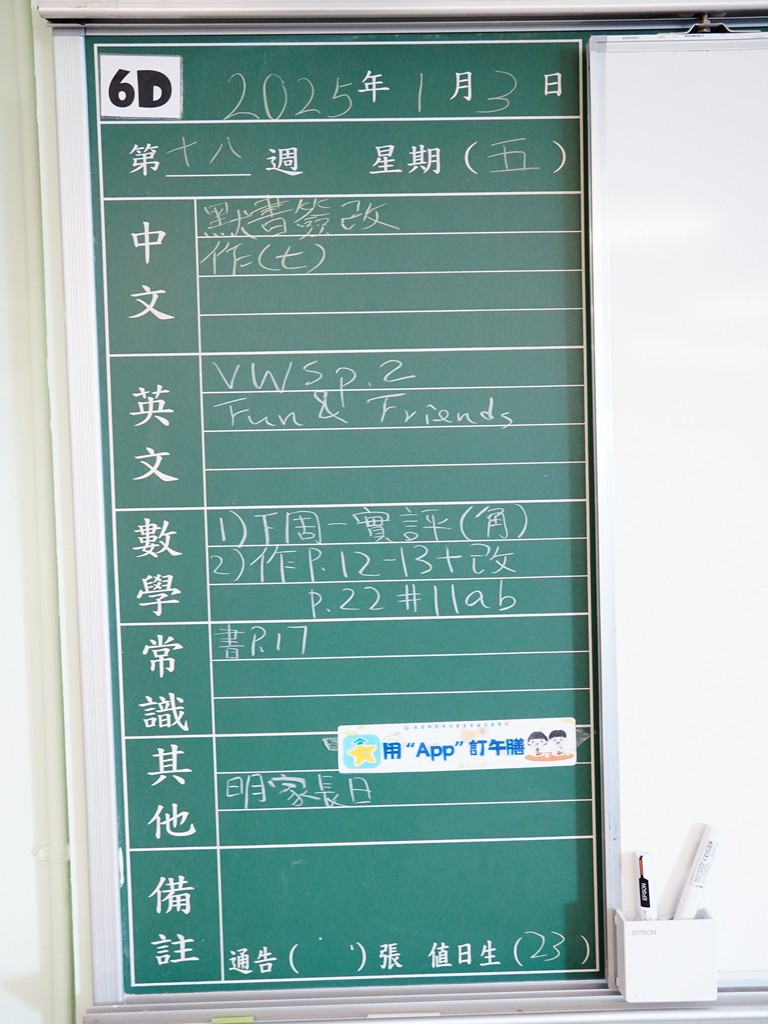 6D 2025年1月3日
第十八週 星期(五)
中文
默書簽改
作(七)
英文
VWS p.2
Fun & Friends
數學
1)下周一實評(角)
2)作P.12-13+改
p.22 #11ab
常識
書P.17
其他
用“App”訂午膳
明家長日
備註
通告( )張 值日生(23)
EPSON
EPSON